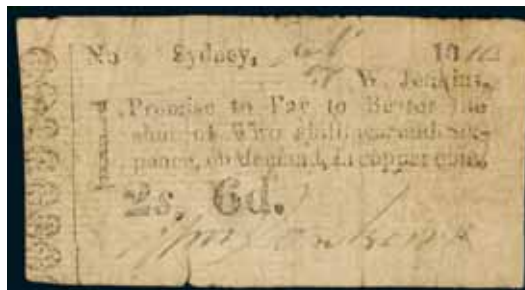 No Sydney, 18
W. Jenkins,
Promise to Pay to Bearer the
sum of Two shillings and six-
pence, on demand, in copper coin.
2s. 6d.